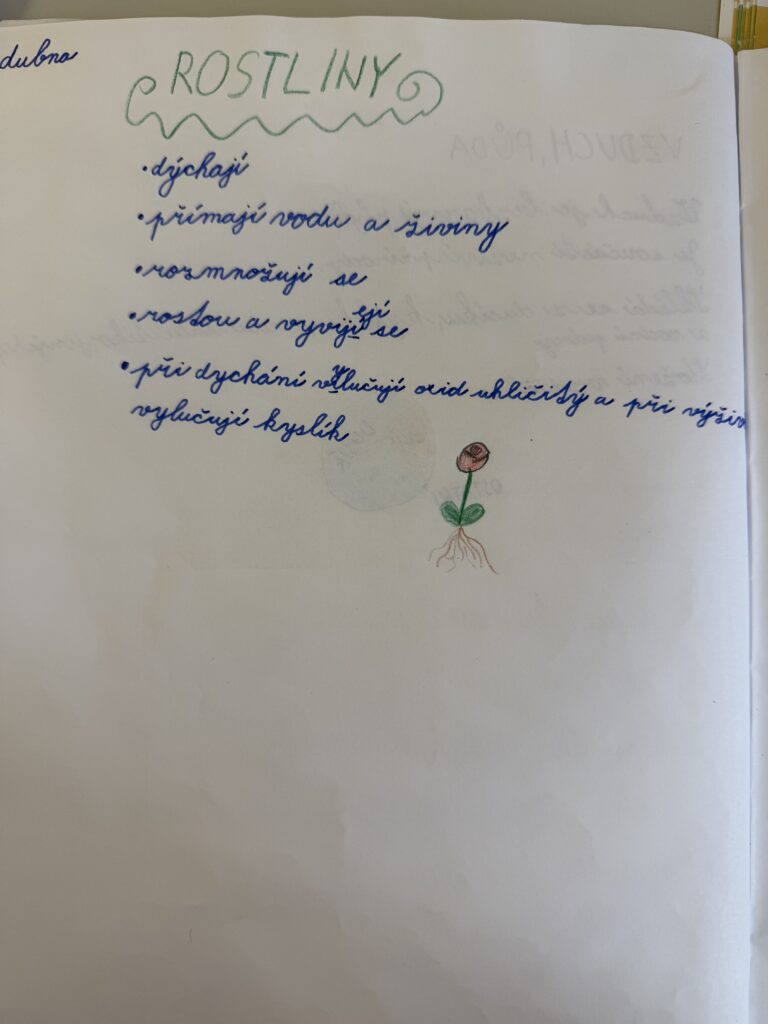 dubna
ROSTLINY
• dýchají
• přímají vodu a živiny
• rozmnožují se
• rostou a vyvíjejí se
• při dychání vylučují oxid uhličitý a při výživ
vylučují kyslík
VZDUCH, PŮDA